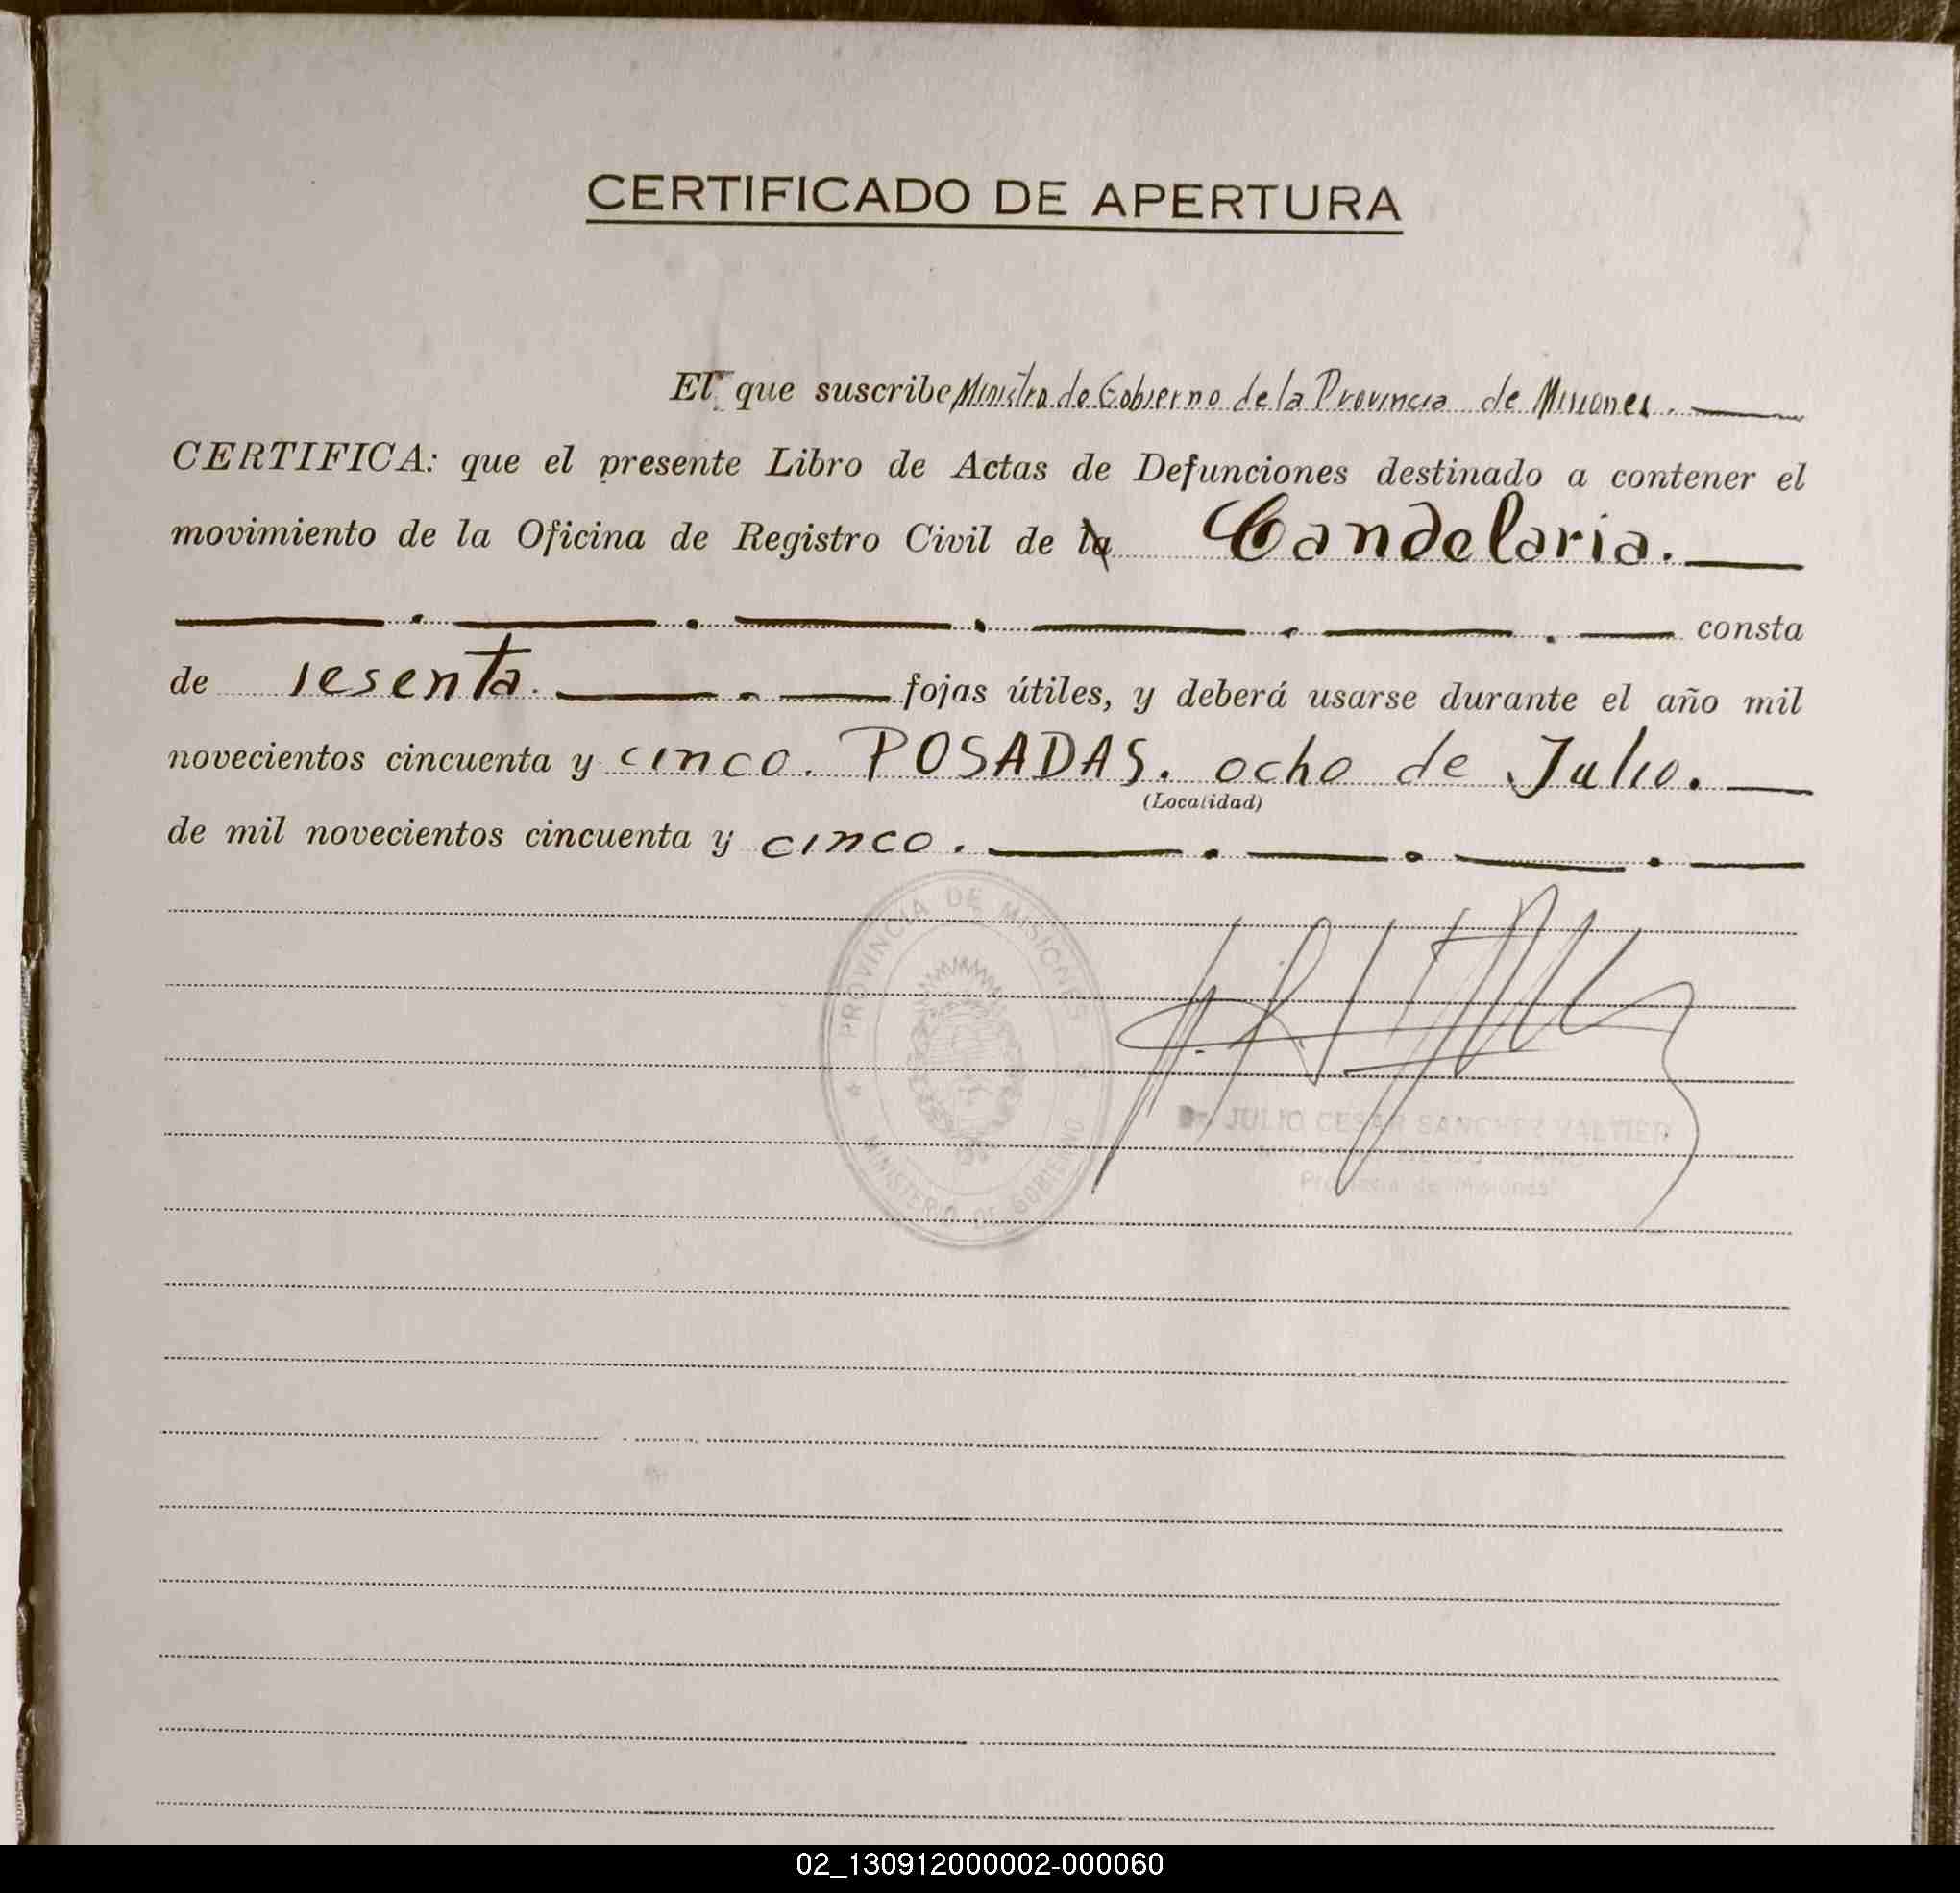 CERTIFICADO DE APERTURA
El que suscribe Ministro de Gobierno de la Provincia de Misiones.
CERTIFICA: que el presente Libro de Actas de Defunciones destinado a contener el
movimiento de la Oficina de Registro Civil de la Candelaria.
consta
de sesenta. fojas útiles, y deberá usarse durante el año mil
novecientos cincuenta y cinco. POSADAS. ocho de Julio.
(Localidad)
de mil novecientos cincuenta y cinco.
PROVINCIA DE MISIONES
MINISTERIO DE GOBIERNO
Dr. JULIO CESAR SANCHEZ VALTIER
Provincia de Misiones
02_130912000002-000060